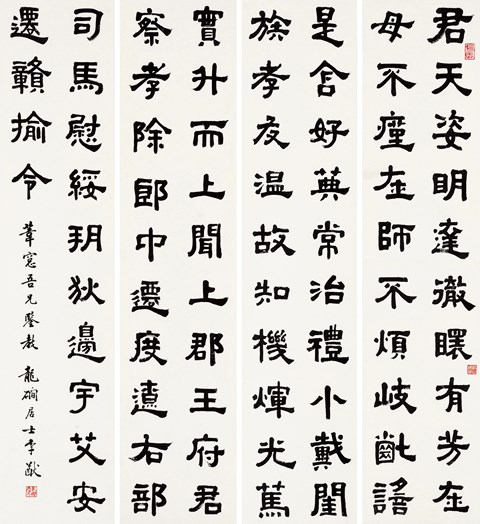 君天姿明達徹曤有芳在
母不瘇在師不煩岐齔謠
是含好典常治禮小戴閨
族孝友温故知機煇光篤
實升而上聞上郡王府君
察孝除郎中遷度遼右部
司馬慰綏朔狄邊宇艾安
遷贛揄令
韋窓吾兄鑒教 龍磵居士李猷